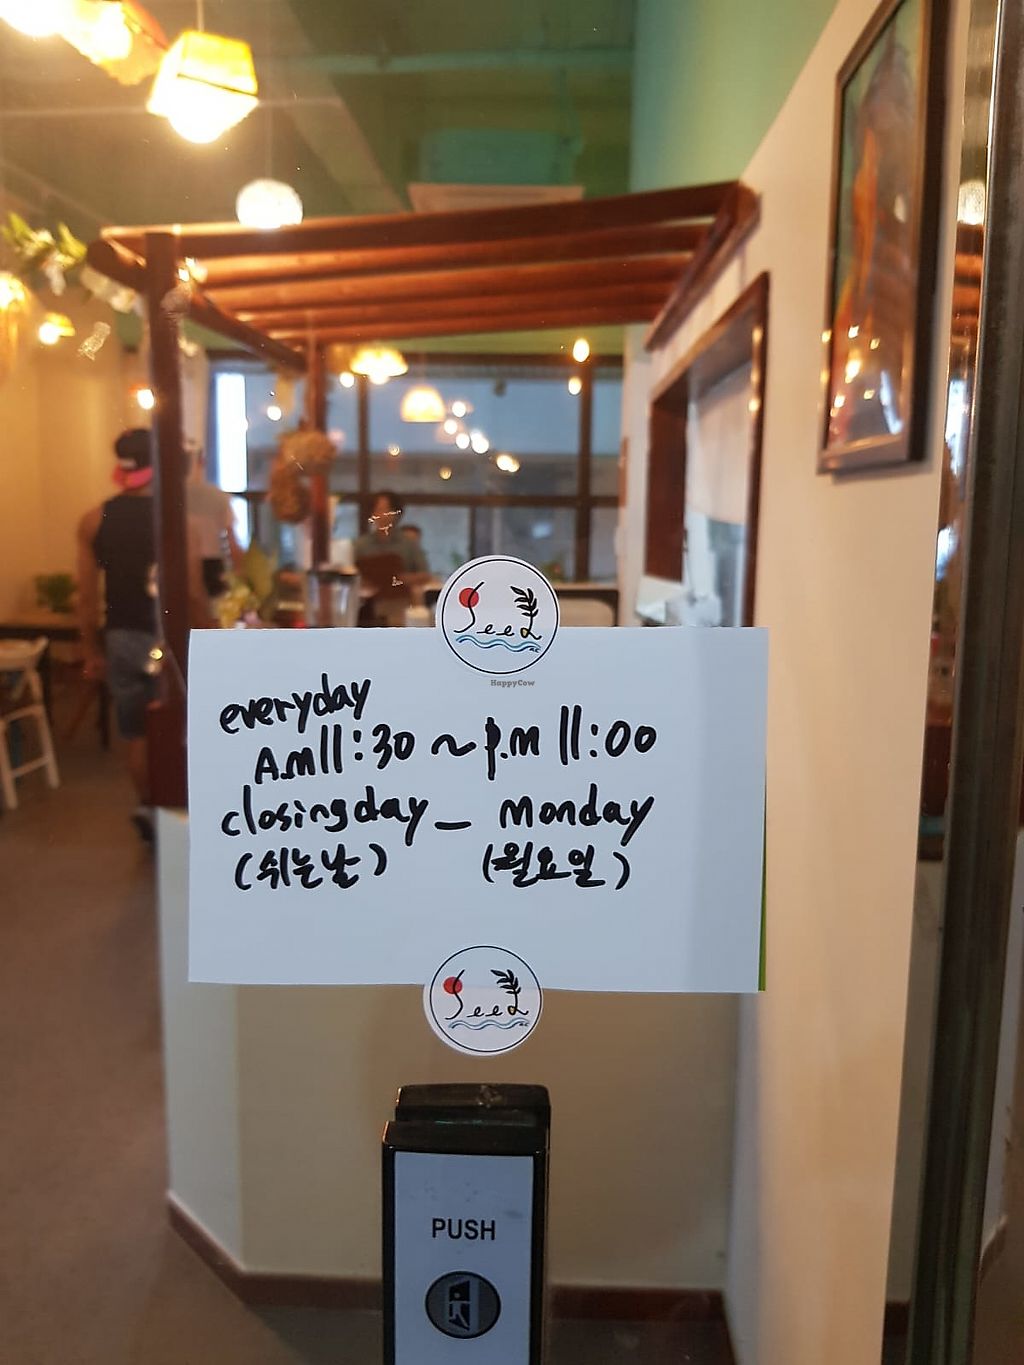 Seed
HappyCow
everyday
A.M 11:30 ~ P.M 11:00
closing day - monday
(쉬는날) (월요일)
Seed
PUSH